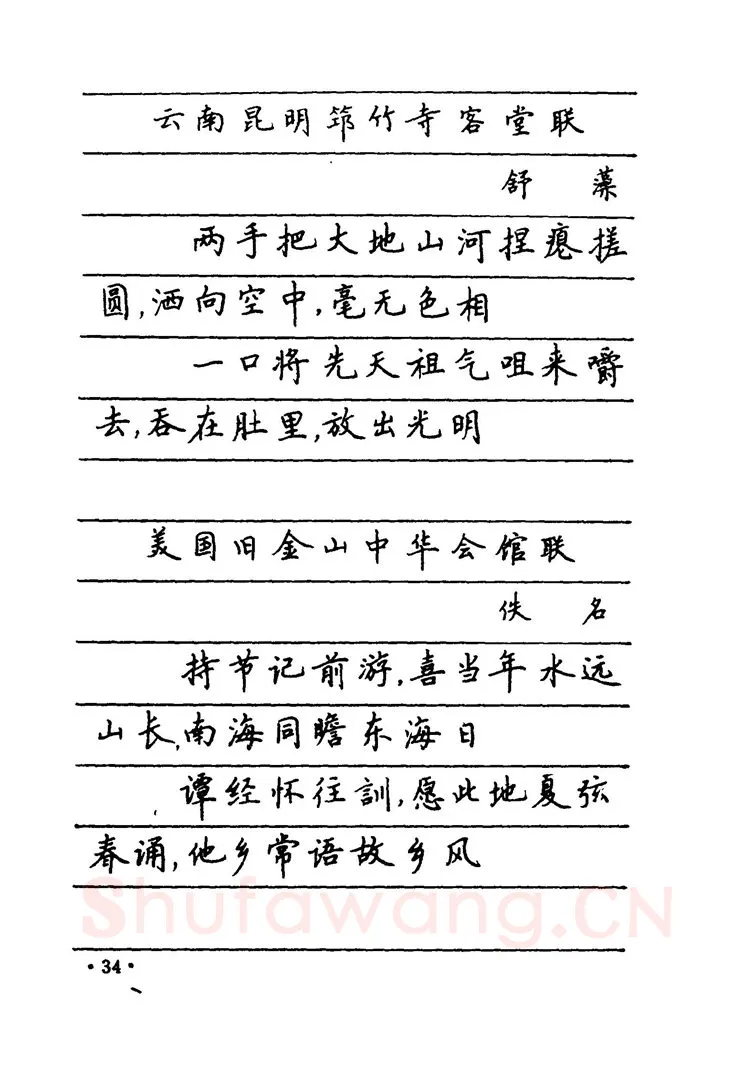 云南昆明筇竹寺客堂联
舒 藻
两手把大地山河捏瘪搓
圆,洒向空中,毫无色相
一口将先天祖气咀来嚼
去,吞在肚里,放出光明
美国旧金山中华会馆联
佚 名
持节记前游,喜当年水远
山长,南海同瞻东海日
谭经怀往訓,愿此地夏弦
春诵,他乡常语故乡风
Shufawang.CN
·34·